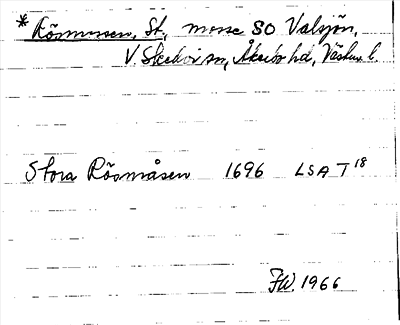 * Rösmossen, St., mosse SO Valsjön,
V. Skedvi sn, Åkerbo hd, Västm. l.
Stora Rösmåsen 1696 LSA T 18
FW. 1966